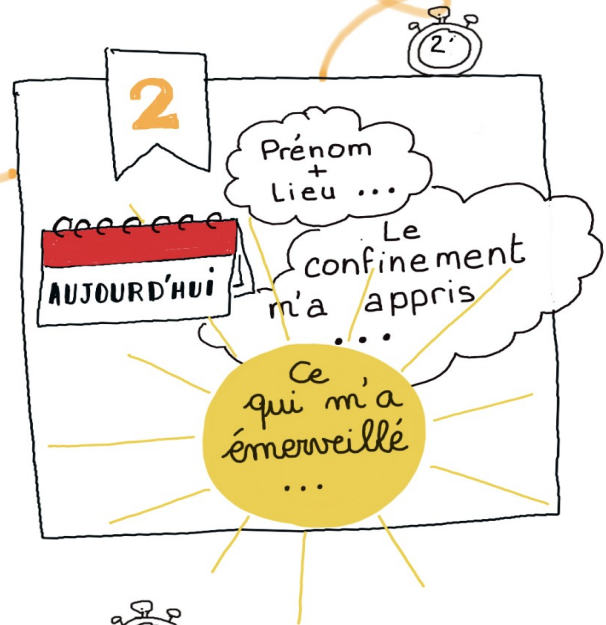 2'
2
Prénom
+
Lieu ...
AUJOURD'HUI
Le
confinement
m'a appris
...
Ce
qui m'a
émerveillé
...